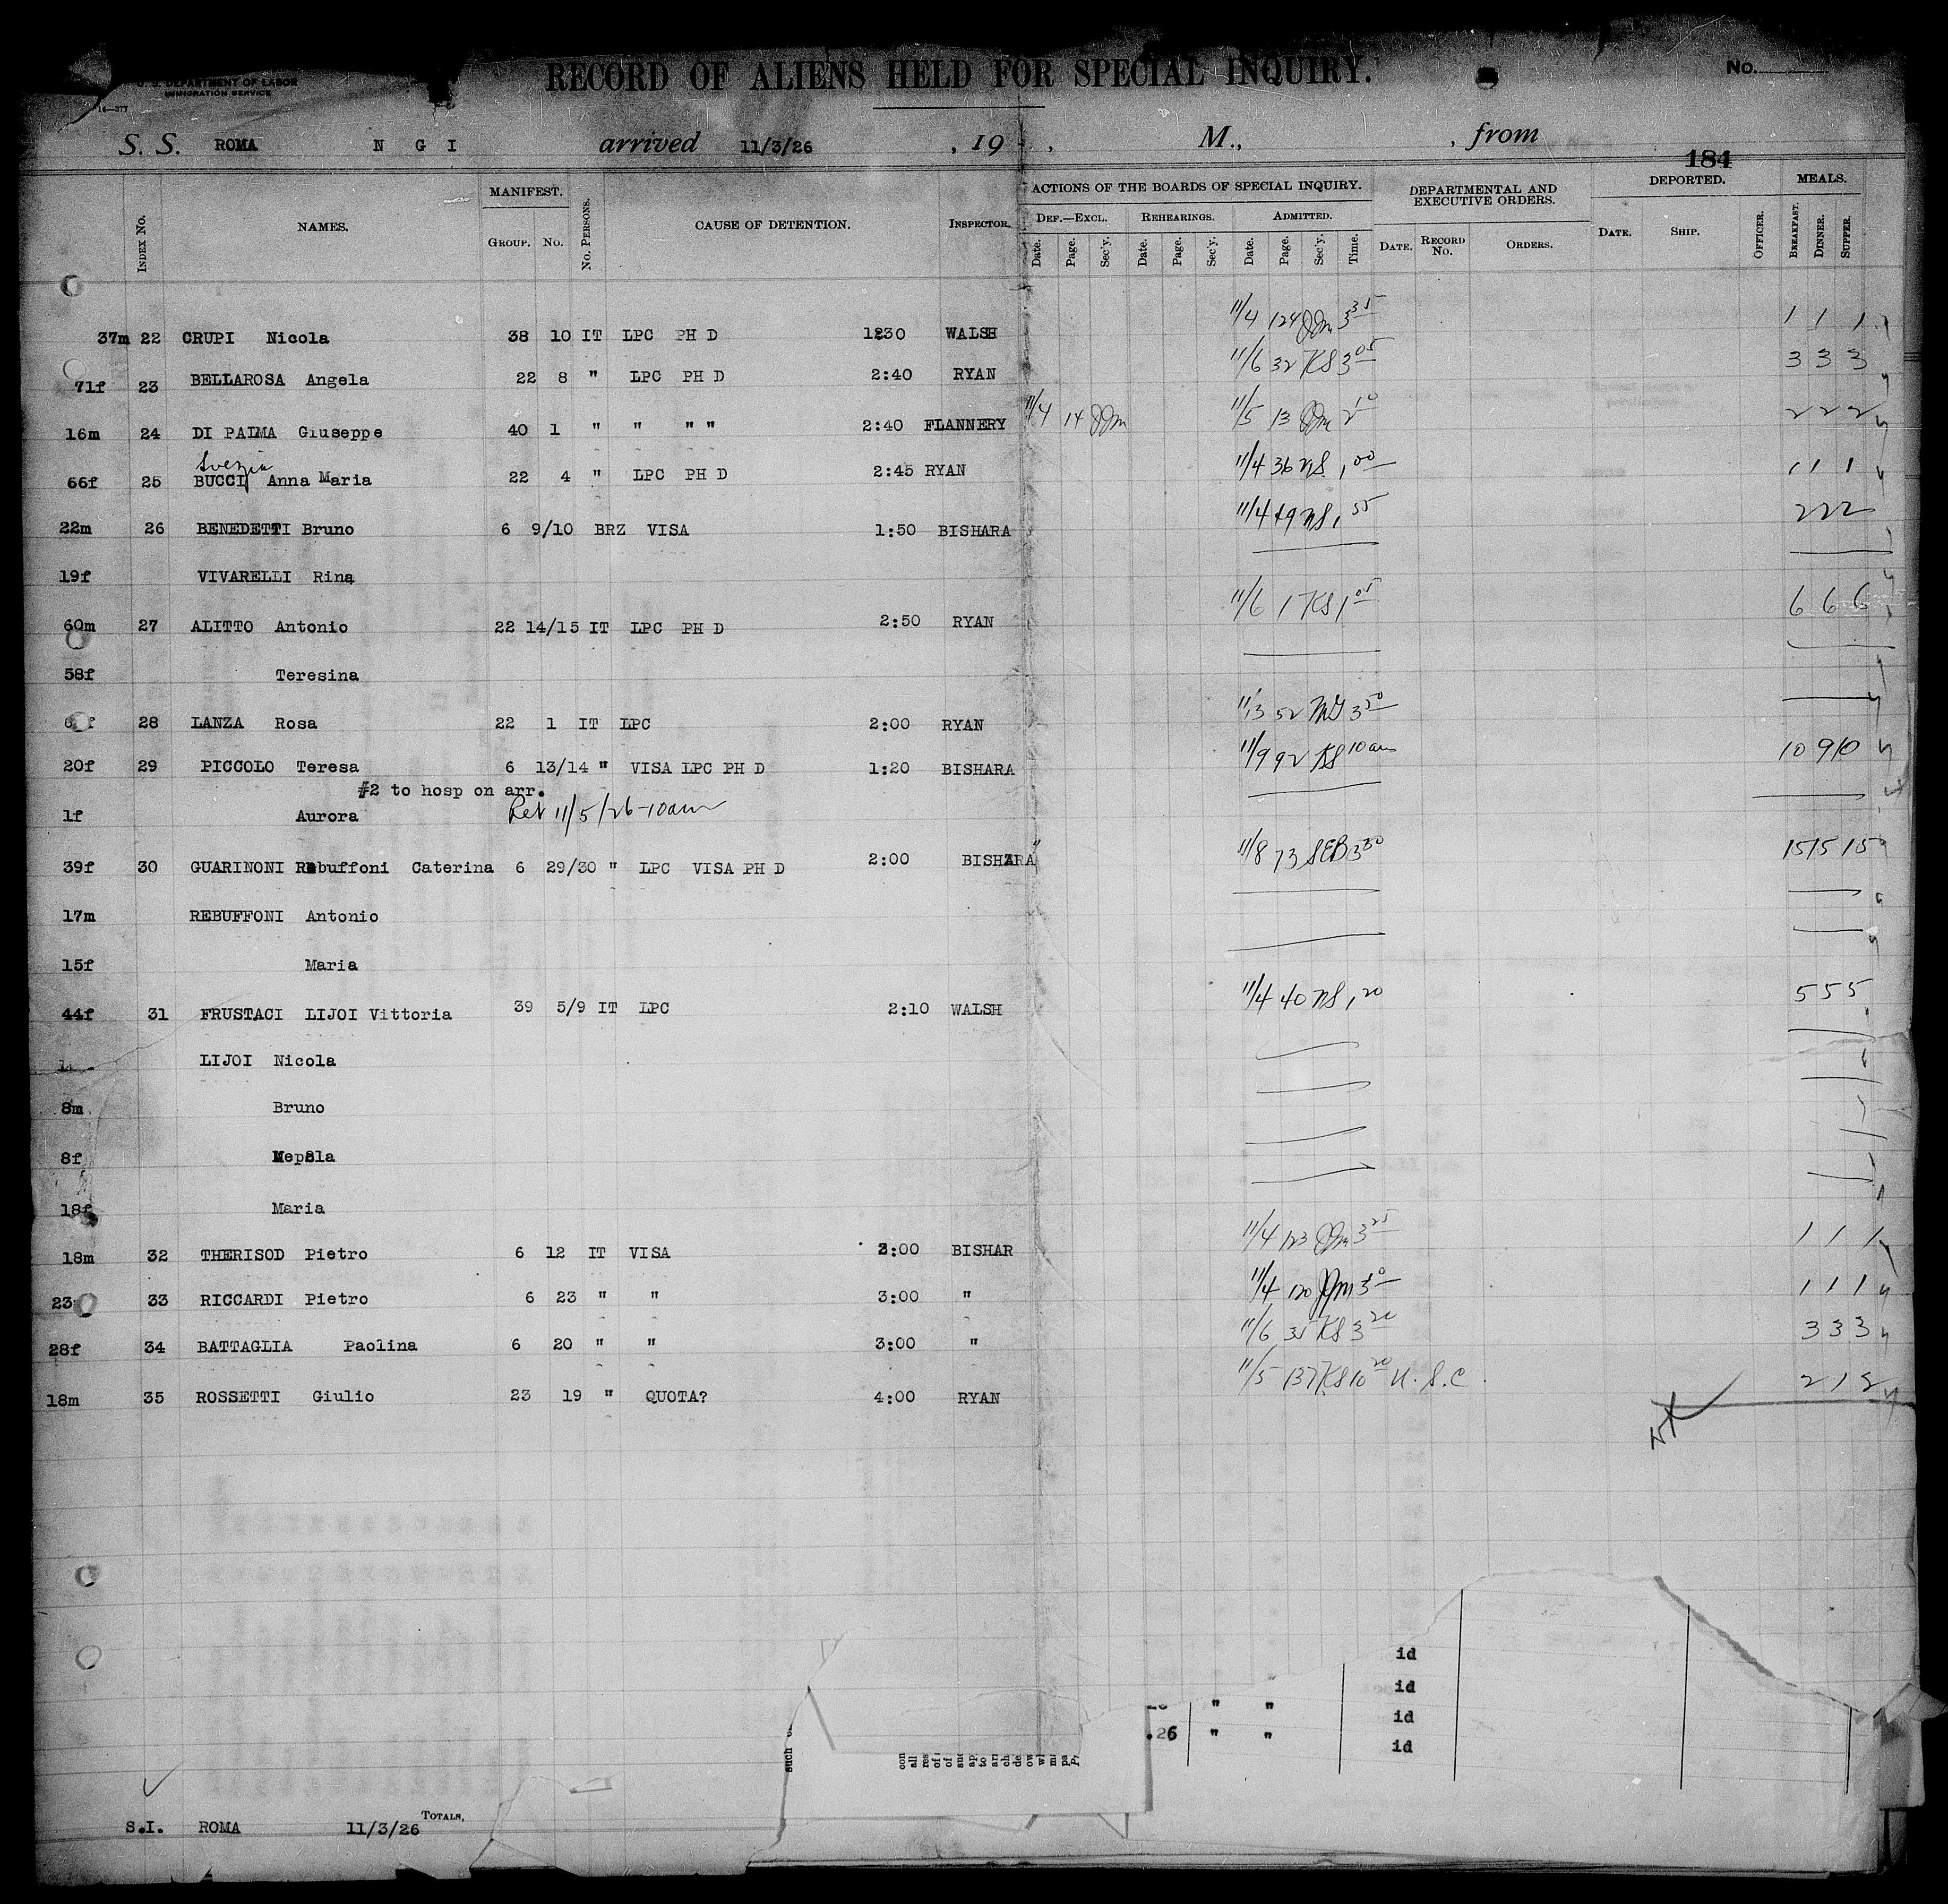 U. S. DEPARTMENT OF LABOR
IMMIGRATION SERVICE
RECORD OF ALIENS HELD FOR SPECIAL INQUIRY.
No.
S. S. ROMA N G I arrived 11/3/26 , 19 , M., , from
184
INDEX NO. NAMES. MANIFEST. GROUP. NO. NO. PERSONS. CAUSE OF DETENTION. INSPECTOR. ACTIONS OF THE BOARDS OF SPECIAL INQUIRY. DEF.—EXCL. Date. Page. Sec'y. REHEARINGS. Date. Page. Sec'y. ADMITTED. Date. Page. Sec'y. Time. DEPARTMENTAL AND EXECUTIVE ORDERS. DATE. RECORD NO. ORDERS. DEPORTED. DATE. SHIP. OFFICER. MEALS. BREAKFAST. DINNER. SUPPER.
37m 22 CRUPI Nicola 38 10 IT LPC PH D 1230 WALSH 11/4 124 JJm 3 35 1 1 1
71f 23 BELLAROSA Angela 22 8 " LPC PH D 2:40 RYAN 11/6 32 KS 3 05 3 3 3
16m 24 DI PALMA Giuseppe 40 1 " " " " 2:40 FLANNERY 11/4 14 JJm 11/5 13 JJm 2 10 2 2 2
Svezia
66f 25 BUCCI Anna Maria 22 4 " LPC PH D 2:45 RYAN 11/4 36 NS 1 00 1 1 1
22m 26 BENEDETTI Bruno 6 9/10 BRZ VISA 1:50 BISHARA 11/4 49 NS 1 55 2 2 2
19f VIVARELLI Rina
60m 27 ALITTO Antonio 22 14/15 IT LPC PH D 2:50 RYAN 11/6 1 KS 1 05 6 6 6
58f Teresina
28 LANZA Rosa 22 1 IT LPC 2:00 RYAN 11/3 52 3 50
20f 29 PICCOLO Teresa 6 13/14 " VISA LPC PH D 1:20 BISHARA 11/9 92 KS 10am 10 9 10
#2 to hosp on arr.
1f Aurora Ret 11/5/26-10am
39f 30 GUARINONI Rebuffoni Caterina 6 29/30 " LPC VISA PH D 2:00 BISHARA 11/8 73 SEB 3 30 15 15 15
17m REBUFFONI Antonio
15f Maria
44f 31 FRUSTACI LIJOI Vittoria 39 5/9 IT LPC 2:10 WALSH 11/4 40 NS 1 20 5 5 5
LIJOI Nicola
8m Bruno
8f
18f Maria
18m 32 THERISOD Pietro 6 12 IT VISA 3:00 BISHAR 11/4 123 JJm 3 25 1 1 1
23 33 RICCARDI Pietro 6 23 " " 3:00 " 11/4 120 JJm 3 10 1 1 1
28f 34 BATTAGLIA Paolina 6 20 " " 3:00 " 11/6 35 KS 3 20 3 3 3
18m 35 ROSSETTI Giulio 23 19 " QUOTA? 4:00 RYAN 11/5 137 KS 10 20 U.S.C. 2 1 2
id
" " id
.26 " " id
id
TOTALS,
S.I. ROMA 11/3/26